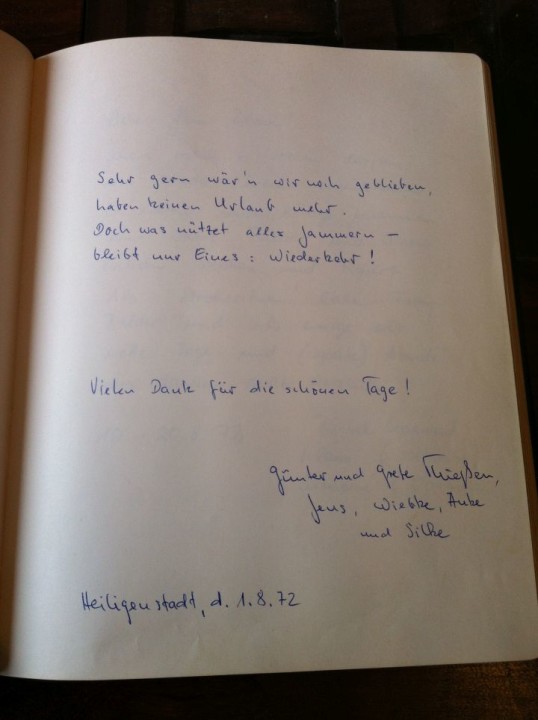 Sehr gern wär'n wir noch geblieben,
haben keinen Urlaub mehr.
Doch was nützet alles Jammern –
bleibt nur Eines: Wiederkehr!
Vielen Dank für die schönen Tage!
Günter und Grete Thießen,
Jens, Wiebke, Anke
und Silke
Heiligenstadt, d. 1.8.72